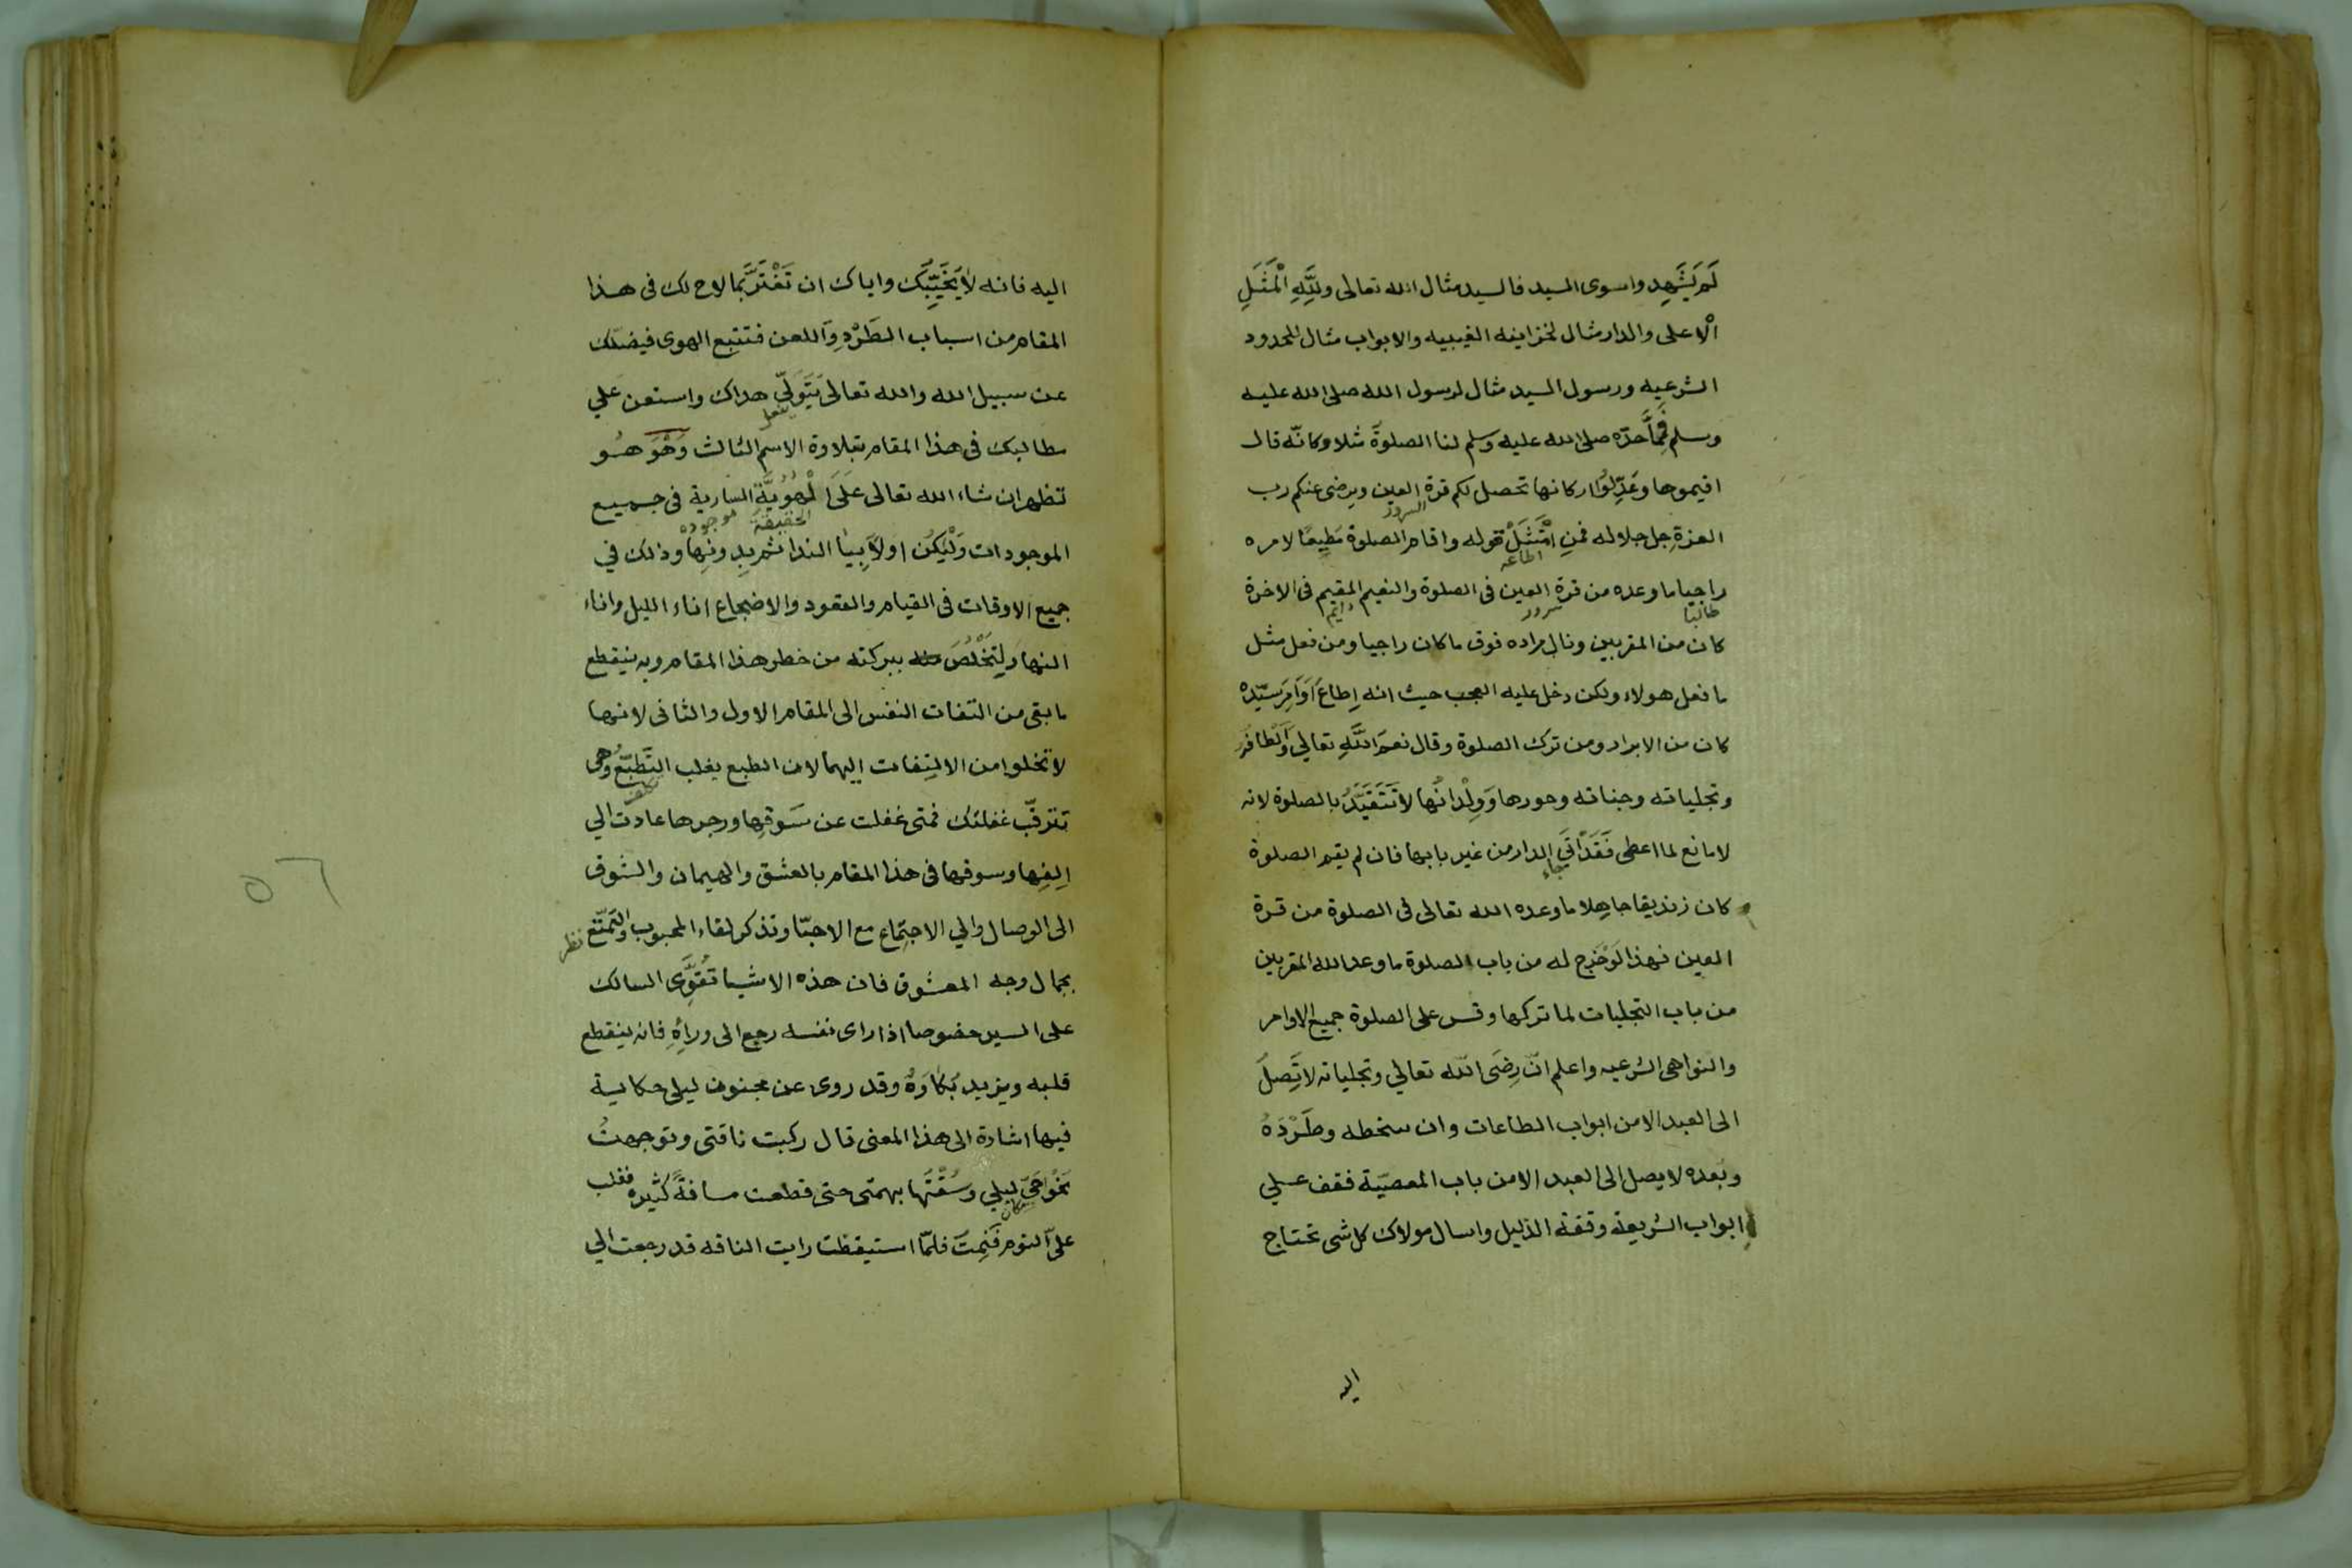 لَم يَشْهَدوا سوى السيد فالسيد مثال الله تعالى ولِلَّهِ الْمَثَلِ
الْاعلى والدار مثال لخزاينه الغيبيه والابواب مثال للحدود
الشرعيه ورسول السيد مثال لرسول الله صلى الله عليه
وسلم فِمَّا حدّه صلى الله عليه وسلم لنا الصلوةَ مثلا وكانّه قال
اقيموها وعَدِّلُوا اركانها تحصل لكم قرة العين ويرضى عنكم رب
السرور
العزةِ جل جلاله فمنِ امْتَثَلْ قوله واقام الصلوة مُطِيعًا لامره
اطاعه
راجيا ما وعده من قرة العين فى الصلوة والنعيم المقيم فى الاخرة
طالبًا سرور دايم
كان من المقربين ونال مراده فوق ما كان راجيا ومن فعل مثل
ما فعل هولاء ولكن دخل عليه العجب حيث انه اطاعَ اَوَامِرَ سيّدِهْ
كان من الابرار ومن ترك الصلوة وقال نعمَ اللَّهِ تعالي وَالْطافُهُ
وتجلياته وجناته وحورها وَوِلْدانُها لا تَتَقَيَّدُ بالصلوة لانه
لا مانع لما اعطى فَقَدْ اتَي الدار من غير بابها فان لم يقم الصلوة
جاء
كان زنديقا جاهِلا ما وعده الله تعالى فى الصلوة من قرة
العين فهذا لَوْ خرج له من باب الصلوة ما وعد الله المقربين
من باب التجليات لما تركها وقس على الصلوة جميع الاوامر
والنواهى الشرعيه واعلم انّ رِضَى اللّه تعالي وتجلياته لا تَصِلَ
الى العبد الا من ابواب الطاعات وان سخطه وطَرْدَهُ
وبَعده لا يصل الى العبد الا من باب المعصيّة فقف علي
ابواب الشريعة وقفة الذليل واسال مولاك كل شى تحتاج
اليه
اليه فانه لا يُخَيِّبَك واياك ان تَغْتَرَّ بما لاح لك فى هذا
المقام من اسباب الطَرْدِ وَاللعن فتتبع الهوى فيضلّك
عن سبيل الله والله تعالى يَتَوَلّي هداك واستعن علي
مطالبك فى هذا المقام بتلاوة الاسم الثالث وَهْوَ هُو
تظهر ان شاء الله تعالى عَلَى الْهُوِيَّة السارية فى جميع
الحقيقة موجوده
الموجودات وَلْيَكُن اولاً بِيا الندا ثم بِدونِها وذلك في
جميع الاوقات فى القيام والقعود والاضجاع اناء الليل واناء
النهار لِتَخْلُصَ ببركته من خطر هذا المقام وبه ينقطع
ما بقى من التفات النفس الى المقام الاول والثانى لانها
لا تخلوا من الالتِفات اليهما لان الطبع يغلب التَطبّع وَهى
تترقّب غفلتك فمتى غفلت عن سَوقِها وزجرها عادت الي
اِلفِها وسوقها فى هذا المقام بالعشق والهيمان والشوق
الى الوصال والي الاجتِماع مع الاحبّا وتذكر لقاء المحبوب والتَمتّع
نظر
بجمال وجه المعشوق فان هذه الاشيا تُقوِّى السالك
على السير خصوصا اذا راى نفسه رجع الى ورايهِ فانه ينقطع
قلبه ويزيد بُكَاوَهُ وقد روى عن مجنون ليلى حكاية
فيها اشارة الى هذا المعنى قال ركبت ناقتى وتوجهتُ
نَحْوَ حَيّ ليلي وسُقْتَها بهمتى حتى قطعت مسافةً كثيره فغلب
مكان
علىّ النوم فَنِمتَ فلمّا استيقظت رايت الناقه قد رجعت الي
٥٦